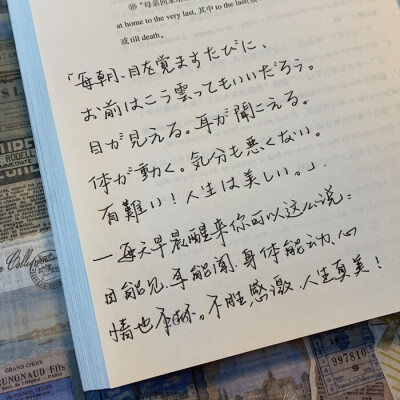 ⑩ "母亲回家
at home to the very last, 其中 to the last
或till death.
「毎朝、目を覚ますたびに、
お前はこう雲ってもいいだろう。
目が見える。耳が聞こえる。
体が動く。気分も悪くない。
有難い!人生は美しい。」.
— 每天早晨醒来你可以这么说:
目能见,耳能闻,身体能动,心
情也不坏。不胜感激,人生真美!
Collection
GRAND CHOIX
RUNGNAUD Fils
997810